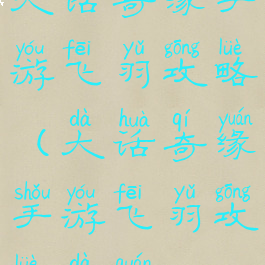 大话奇缘手
yóu fēi yǔ gōng lüè
游飞羽攻略
dà huà qí yuán
（大话奇缘
shǒu yóu fēi yǔ gōng
手游飞羽攻
lüè dà quán